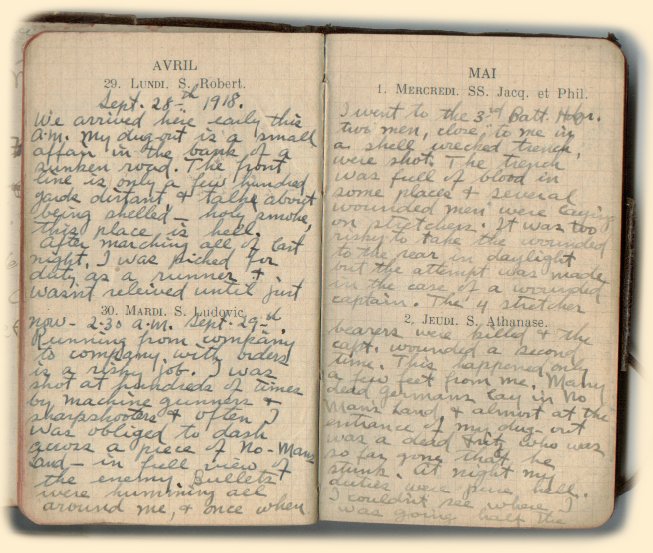 AVRIL
29. LUNDI. S. Robert.
Sept. 28-th 1918.
We arrived here early this
a.m. My dug-out is a small
affair in the bank of a
sunken road. The front
line is only a few hundred
yards distant & talk about
being shelled - holy smoke,
this place is hell.
After marching all of last
night, I was picked for
duty as a runner &
wasn't releived until just
30. MARDI. S. Ludovic.
now - 2:30 a.m. Sept. 29-th.
Running from company
to company with orders
is a risky job. I was
shot at hundreds of times
by machine gunners &
sharpshooters & often I
was obliged to dash
across a piece of No-Mans
Land - in full view of
the enemy. Bullets
were humming all
around me, & once when
MAI
1. MERCREDI. SS. Jacq. et Phil.
I went to the 3rd Batt. Hdqr.
two men, close to me in
a shell wrecked trench,
were shot. The trench
was full of blood in
some places & several
wounded men were laying
on stretchers. It was too
risky to take the wounded
to the rear in daylight
but the attempt was made
in the case of a wounded
captain. The 4 stretcher
2. JEUDI. S. Athanase.
bearers were killed & the
capt. wounded a second
time. This happened only
a few feet from me. Many
dead germans lay in No
Mans Land & almost at the
entrance of my dug-out
was a dead who was
so far gone that he
stunk. At night my
duties were pure hell.
I couldn't see where I
was going half the